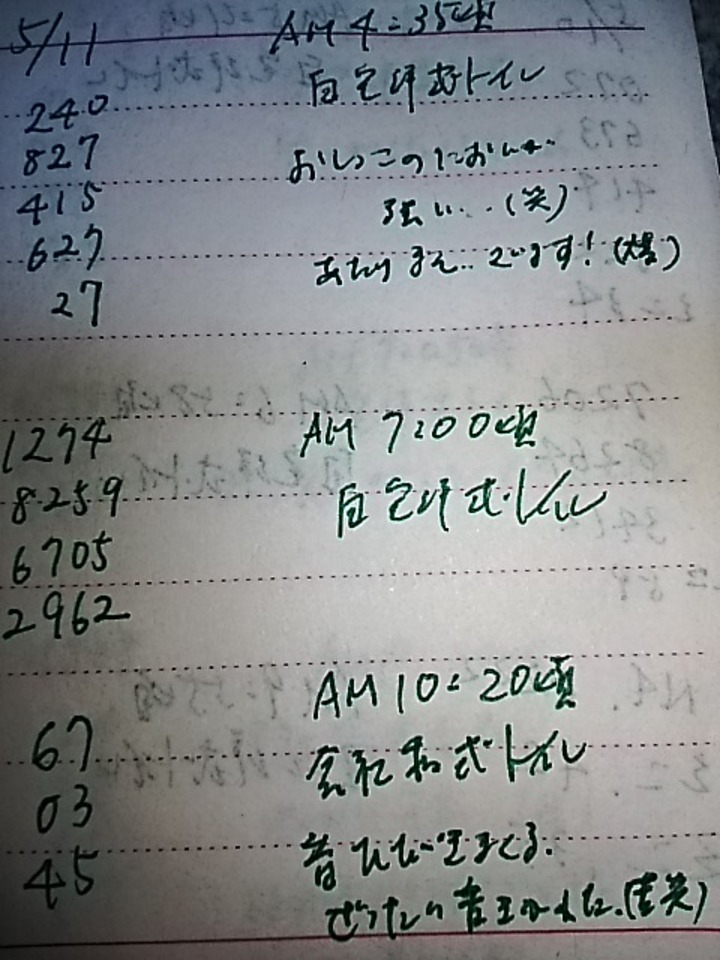 5/11 AM 4:35頃
240 自宅洋式トイレ
827 おしっこのにおいが
415 強い...(笑)
627 あたりまえ..でいます!(爆)
27
1274 AM 7:00頃
8259 自宅洋式トイレ
6705
2962
AM 10:20頃
67 会社和式トイレ
03
45 音ひびきまくる.
ぜったい音